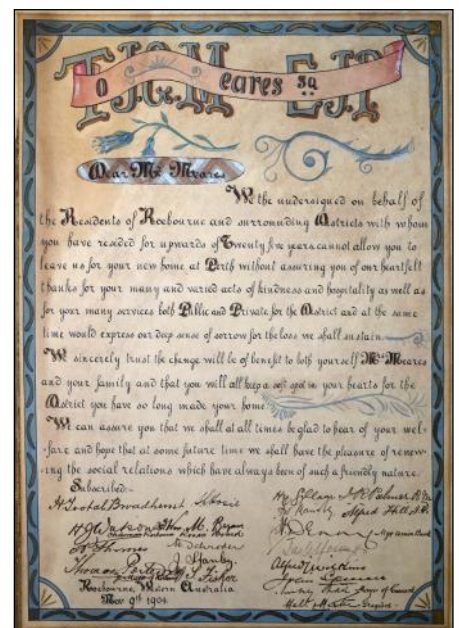 To J.G. Meares Esq J.P.
Dear Mr. Meares
We the undersigned on behalf of
the Residents of Roebourne and surrounding Districts with whom
you have resided for upwards of Twenty five years cannot allow you to
leave us for your new home at Perth without assuring you of our heartfelt
thanks for your many and varied acts of kindness and hospitality as well as
for your many services both Public and Private for the District and at the same
time would express our deep sense of sorrow for the loss we shall sustain
We sincerely trust the change will be of benefit to both yourself Mrs Meares
and your family and that you will all keep a soft spot in your hearts for the
District you have so long made your home
We can assure you that we shall at all times be glad to hear of your wel-
fare and hope that at some future time we shall have the pleasure of renew-
ing the social relations which have always been of such a friendly nature.
Subscribed:-
Broadhurst
H J Watson M. Ryan
Thomas
J. Stanley
Fisher
Alfred Hill
Alfred
Roebourne, Western Australia
Nov 9th 1904